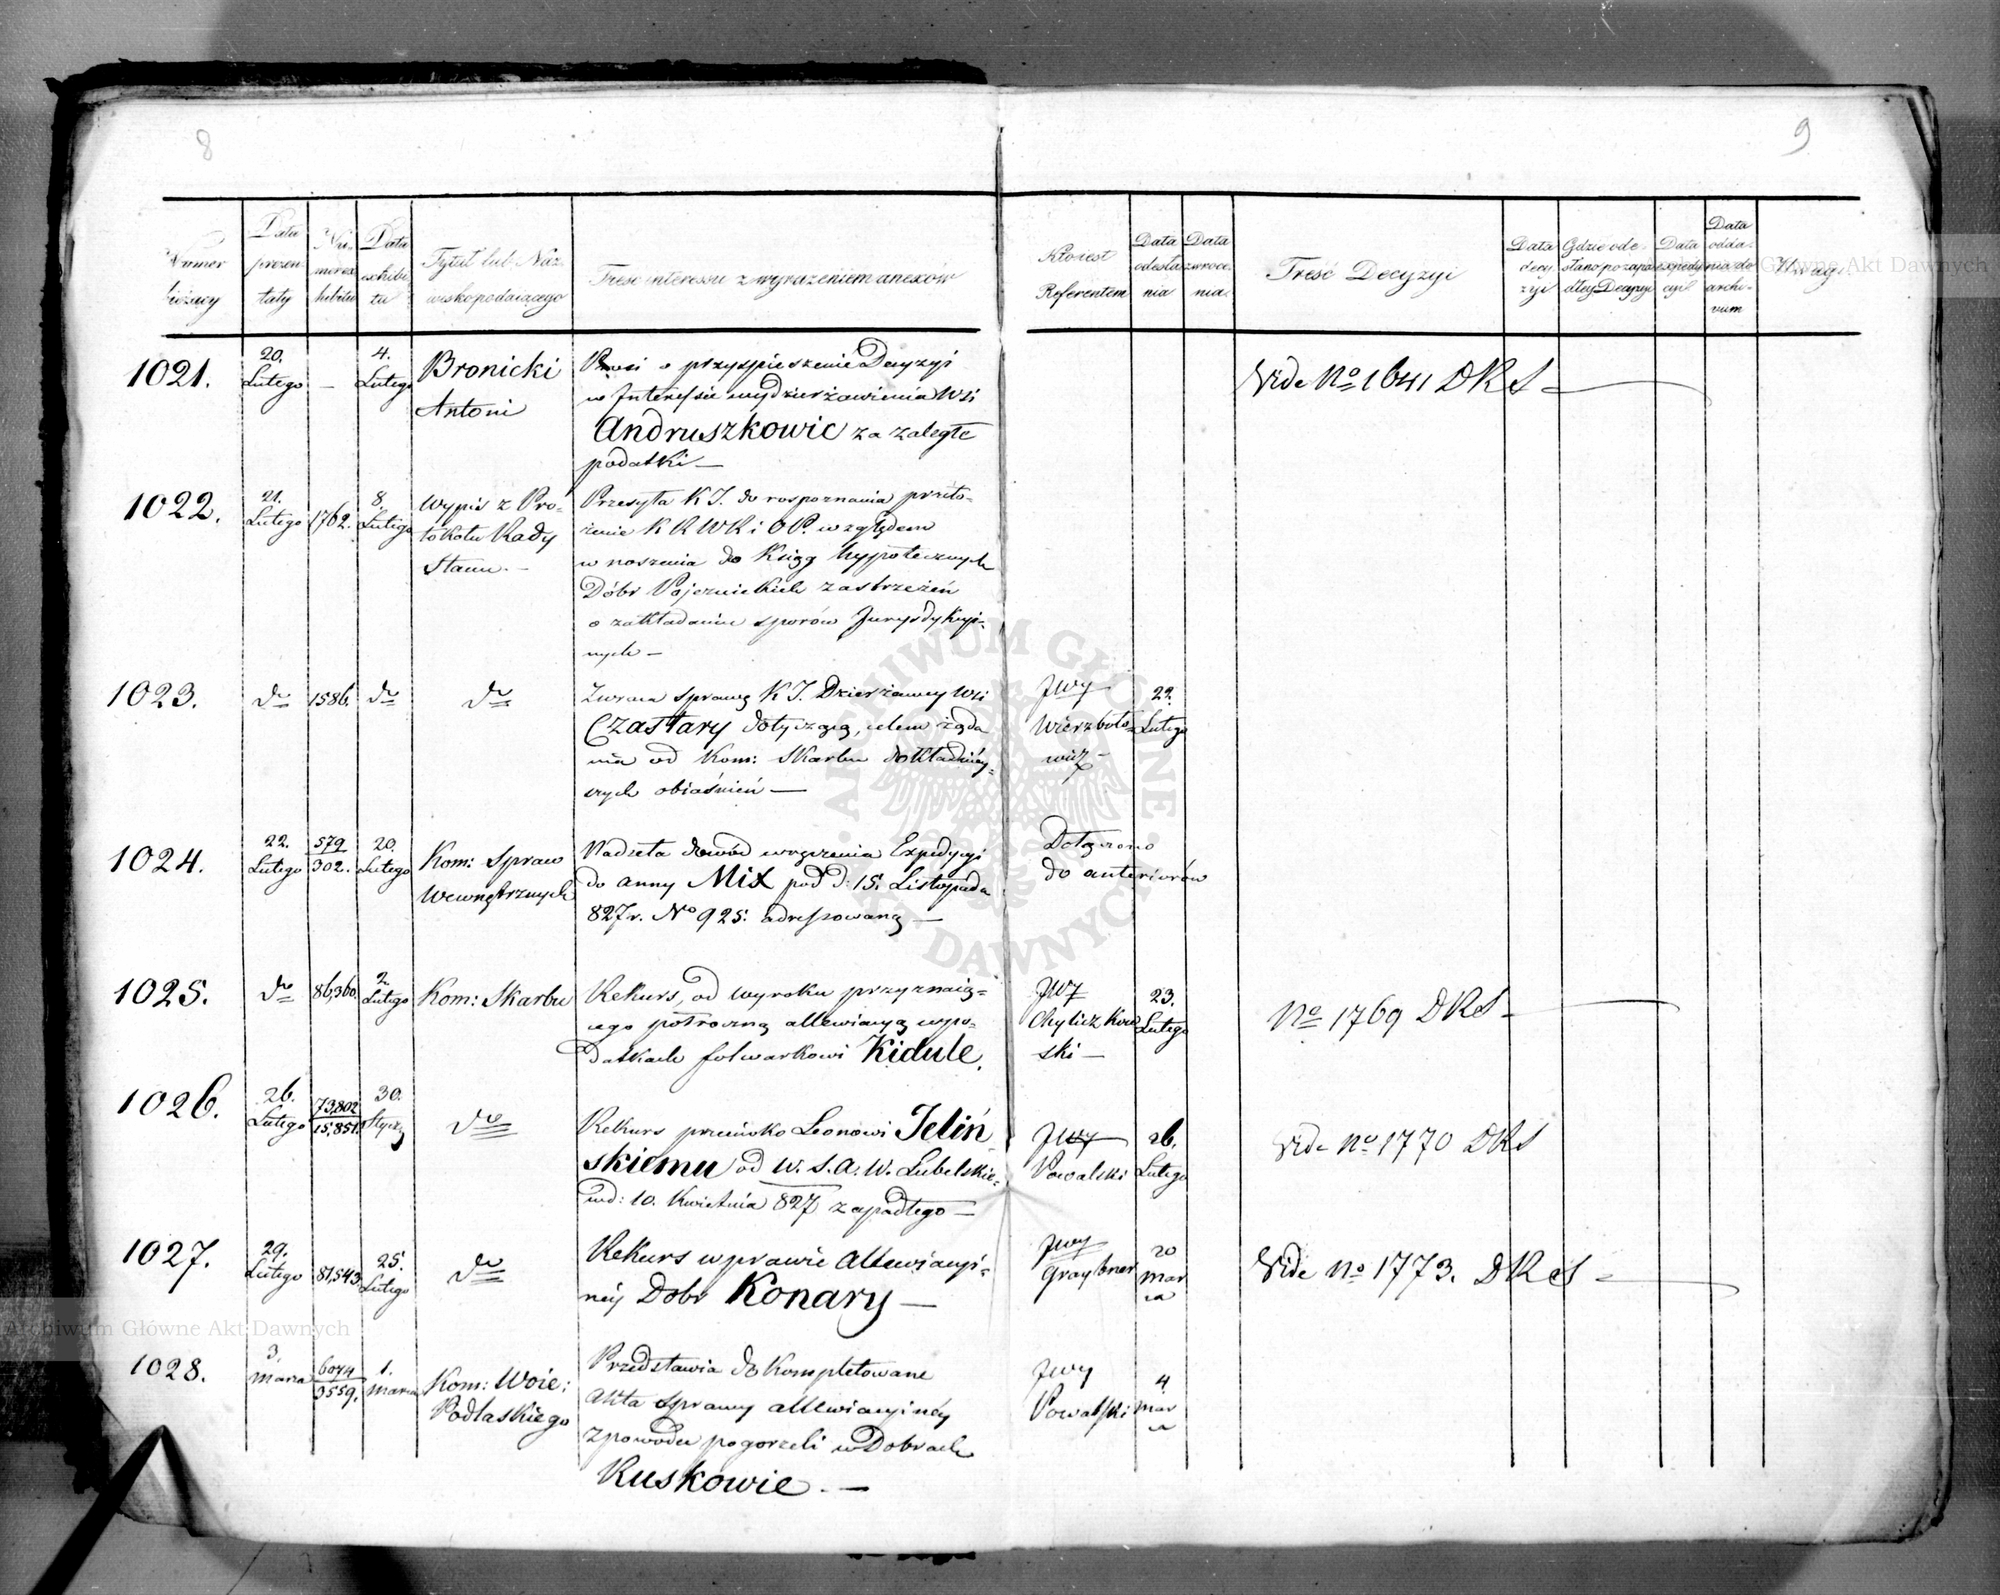 8
9
Numer bieżący
Data prezentaty
Numer exhibitu
Data exhibitu
Tytuł lub Nazwisko podaiącego
Treść interessu z wyrażeniem anexów
Kto iest Referentem
Data odesłania
Data zwrocenia
Treść Decyzyi
Data decyzyi
Gdzie odesłano po zapadłey Decyzyi
Data expedycyi
Data oddania do archivum
Uwagi
1021.
20. Lutego
—
4. Lutego
Bronicki
Antoni
Prosi o przyspieszenie Decyzyi
w Interessie wydzierżawienia Wsi
Andruszkowic za zaległe
podatki —
Vide No 1641 DKS —
1022.
21. Lutego
1762.
8. Lutego
Wypis z Pro-
tokołu Rady
Stanu. —
Przesyła K J. do rospoznania przeło-
żenie K R W R i O P. względem
wnoszenia do Ksiąg hypotecznych
Dóbr Pojezuickich zastrzeżeń
o zakładaniu sporów Jurysdykcyi-
nych —
1023.
do
1586.
do
do
Zwraca sprawę K J. Dzierżawcy Wsi
Czastary dotyczącą, celem żąda
nia od Kom: Skarbu dokładniey-
szych obiaśnień —
JWy
Wierzboło-
wicz —
22.
Lutego
1024.
22. Lutego
579
302.
20. Lutego
Kom: Spraw
Wewnętrznych
Nadseła dowód wręczenia Expedycyi
do anny Mix pod d: 15. Listopada
827 r. No 925. adressowaną —
Dołączono
do anteriorów
1025.
do
86,360.
2. Lutego
Kom: Skarbu
Rekurs, od wyroku przyznaią-
cego potroczną allewiacyą w po-
datkach folwarkowi Kidule.
JWy
Chyliczkow
ski —
23.
Lutego
No 1769 DKS —
1026.
26. Lutego
73,802
15,851.
30. Stycz
do
Rekurs przeciwko Leonowi Jeliń
skiemu od W. S. A. W. Lubelskie-
wd: 10. Kwietnia 827 zapadłego —
JWy
Powalski
26.
Lutego
Vide No 1770 DKS
1027.
29. Lutego
81,543
25. Lutego
do
Rekurs w prawie allewiacyi-
ney Dobr Konary —
JWy
Graybner
20
mar
ca
Vide No 1773. DKS —
1028.
3. marca
6074
3559.
1. marca
Kom: Woie:
Podlaskiego
Przedstawia dokompletowane
akta sprawy allewiacyiney
z powodu pogorzeli w Dobrach
Ruskowie. —
JWy
Powalski
4
mar
ca
ARCHIWUM GŁÓWNE AKT DAWNYCH
Archiwum Główne Akt Dawnych
Archiwum Główne Akt Dawnych